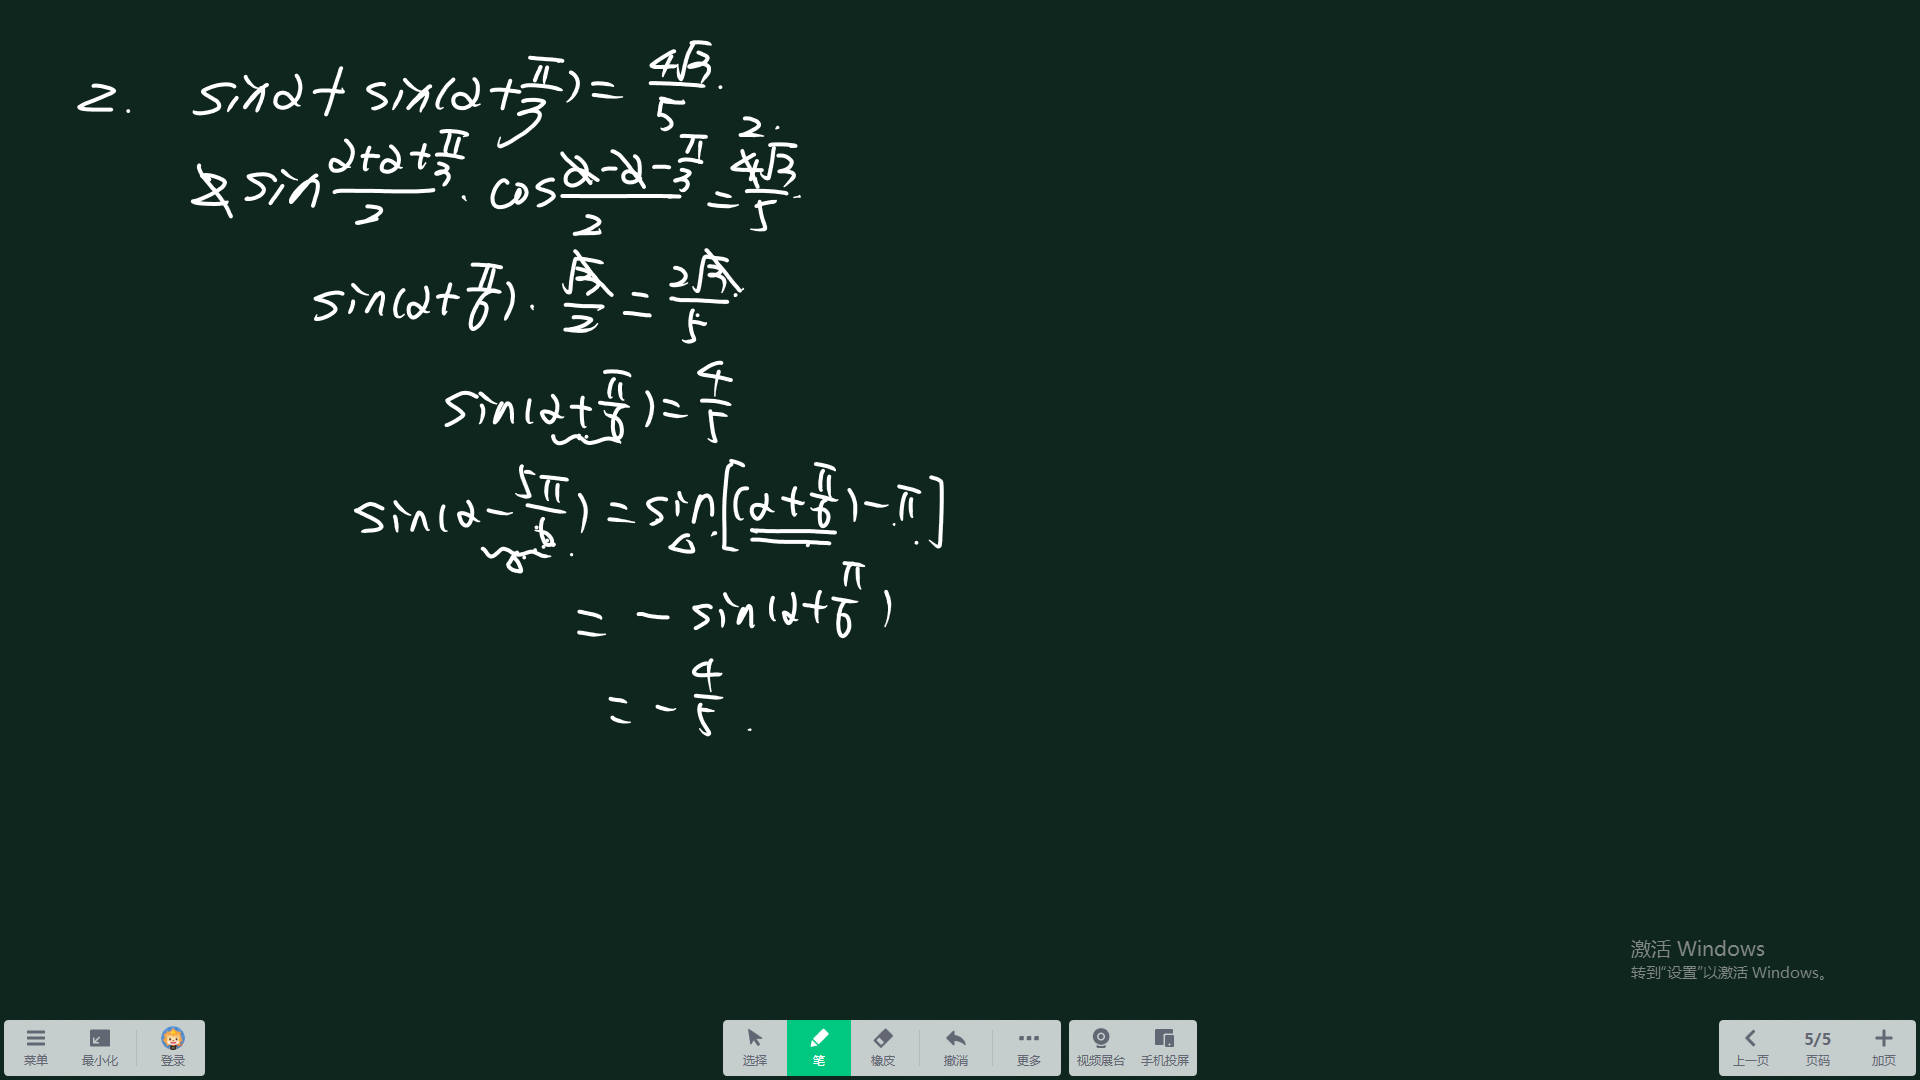 2. sinα + sin(α+π/3) = 4√3/5.
2 sin (α+α+π/3)/2 · cos (α-α-π/3)/2 = 4√3/5 2.
sin(α+π/6) · √3/2 = 2√3/5
sin(α+π/6) = 4/5
sin(α-5π/6) = sin[(α+π/6)-π]
= - sin(α+π/6)
= - 4/5.
激活 Windows
转到“设置”以激活 Windows。
菜单 最小化 登录 选择 笔 橡皮 撤消 更多 视频展台 手机投屏 上一页 5/5 页码 加页